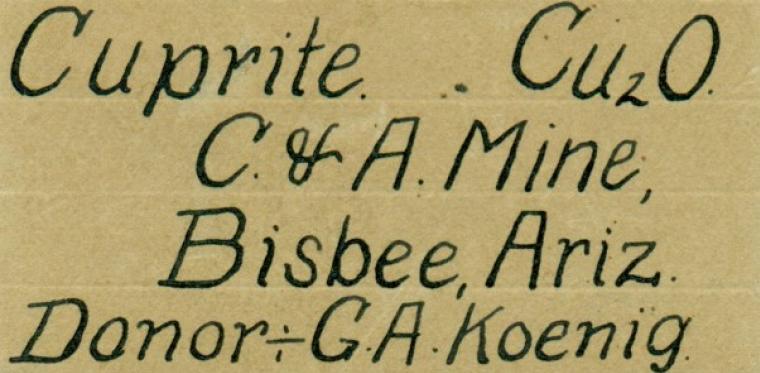 Cuprite. Cu₂O.
C. & A. Mine,
Bisbee, Ariz.
Donor÷G.A. Koenig.